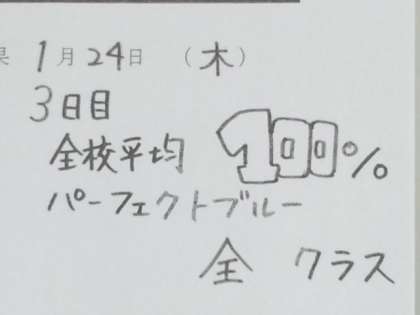 1月24日（木）
3日目
全校平均 100%
パーフェクトブルー
全 クラス